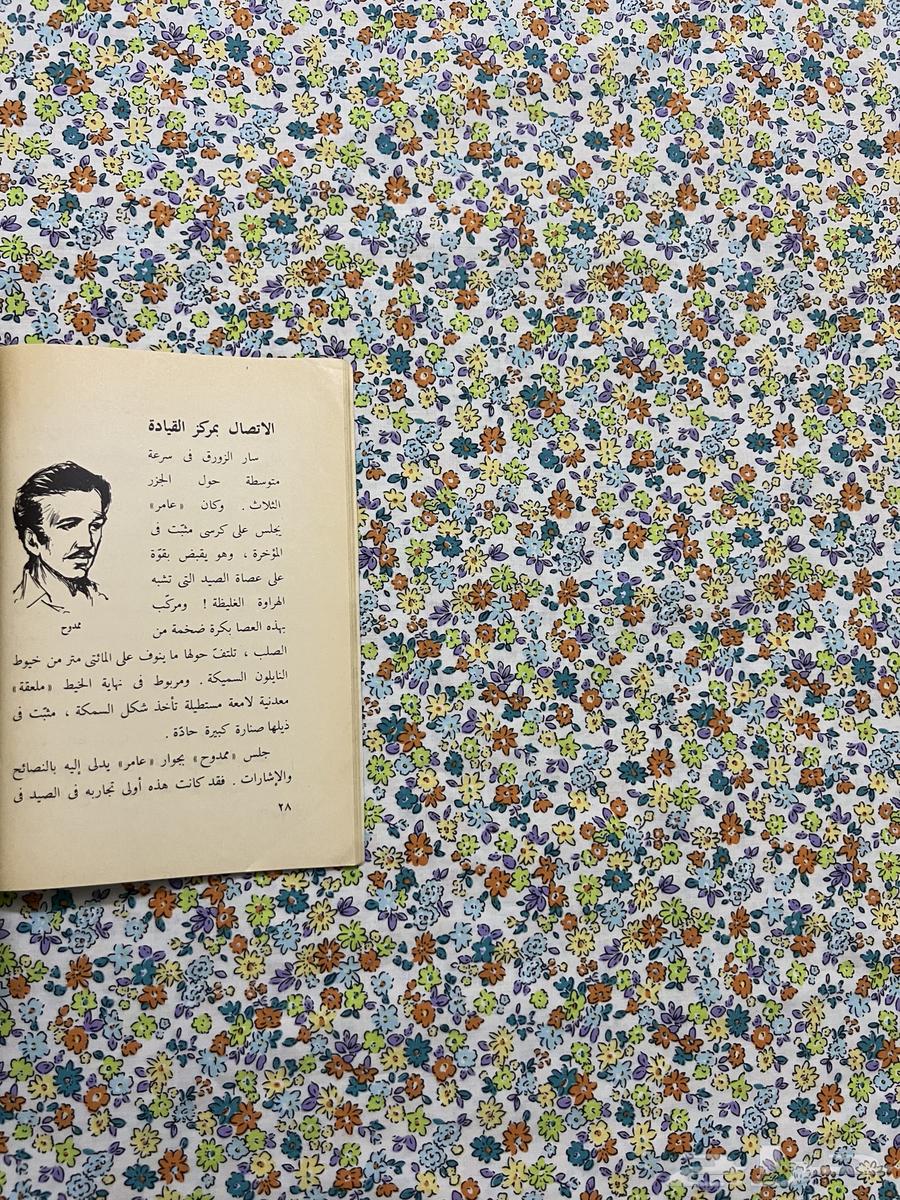 الاتصال بمركز القيادة
سار الزورق فى سرعة
متوسطة حول الجزر
الثلاث . وكان «عامر»
يجلس على كرسى مثبّت فى
المؤخرة ، وهو يقبض بقوّة
على عصاة الصيد التى تشبه
الهراوة الغليظة ! ومركّب
بهذه العصا بكرة ضخمة من
ممدوح
الصلب ، تلتفّ حولها ما ينوف على المائتى متر من خيوط
النايلون السميكة . ومربوط فى نهاية الخيط «ملعقة»
معدنية لامعة مستطيلة تأخذ شكل السمكة ، مثبّت فى
ذيلها صنارة كبيرة حادّة .
جلس «ممدوح» بجوار «عامر» يدلى إليه بالنصائح
والإشارات . فقد كانت هذه أولى تجاربه فى الصيد فى
٢٨